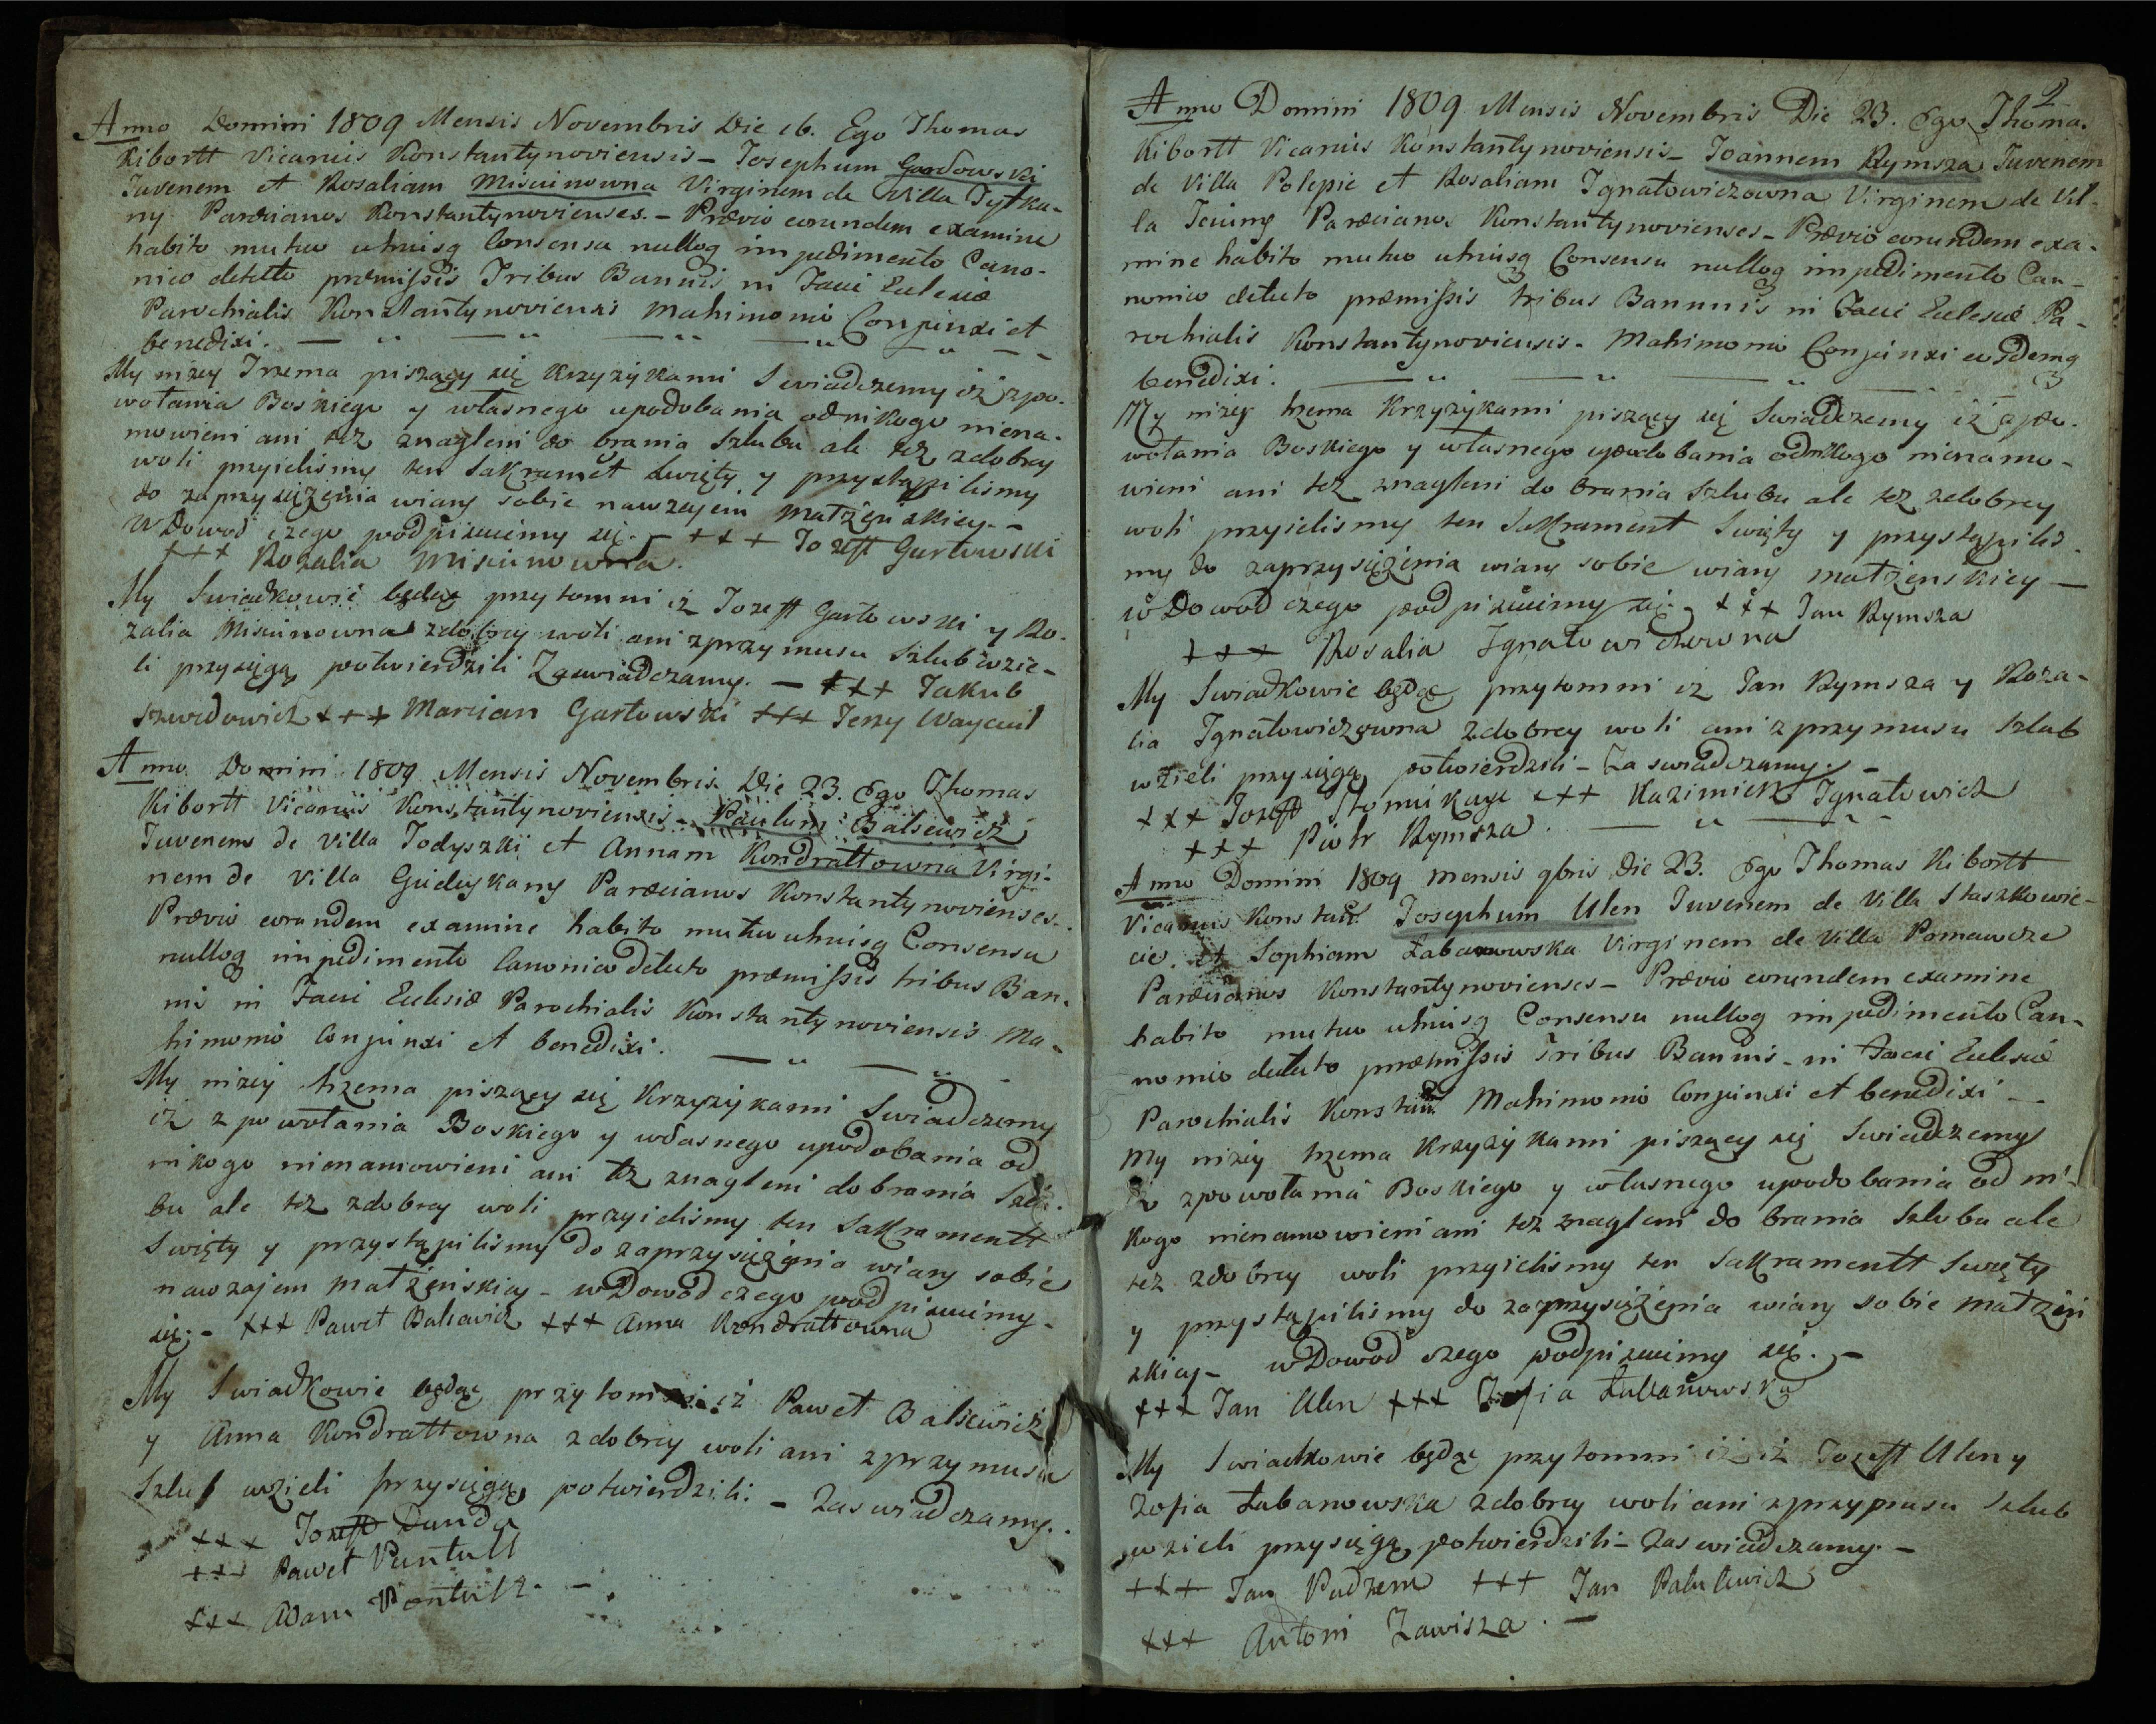 Anno Domini 1809 Mensis Novembris Die 16. Ego Thomas
Kibortt Vicarius Konstantynoviensis - Josephum Gardowski
Juvenem et Rosaliam Misiunowna Virginem de Villa Tytka-
ny Parœcianos Konstantynovienses. - Prævio eorundem examine
habito mutuo utriusq Consensu nulloq impedimento Cano-
nico detecto præmissis Tribus Bannis in Facie Eclesiæ
Parochialis Konstantynoviensis Matrimonio Conjunxi et
benedixi.
My niżey Trzema piszący się krzyżykami Swiadczemy iż zpo-
wołania Boskiego y własnego upodobania odnikogo niena-
mowieni ani też znagleni do brania szlubu ale też zdobrey
woli przyielismy ten Sakramet Święty y przystąpilismy
do zaprzysiężenia wiary sobie nawzajem małżenskiey. -
W Dowod czego podpisuiemy się. - +++ Jozeff Gartowski
+++ Rozalia Misiunowna.
My Swiadkowie będąc przytomni iż Jozeff Gartowski y Ro-
zalia Misiunowna zdobrey woli ani zprzymusu Szlub wzie-
li przysięgą potwierdzili Zaswiadczamy. - +++ Jakub
Szwedowicz +++ Marcian Gartowski +++ Jerzy Waycuil
Anno Domini 1809 Mensis Novembris Die 23. Ego Thomas
Kibortt Vicarius Konstantynoviensis - Paulum Balsewicz
Juvenem de Villa Jodyszki et Annam Kondrattowna Virgi-
nem de Villa Gudyszkany Parœcianos Konstantynovienses.
Prævio eorundem examine habito mutuo utriusq Consensu
nulloq impedimento Canonico detecto præmissis tribus Ban-
nis in Facie Eclesiæ Parochialis Konstantynoviensis Ma-
trimonio Conjunxi et benedixi.
My niżey trzema piszący się Krzyżykami Swiadczemy
iż z powołania Boskiego y własnego upodobania od
nikogo nienamowieni ani też znagleni do brania Szlu-
bu ale też zdobrey woli przyielismy ten Sakramentt
Swięty y przystąpilismy do zaprzysiężenia wiary sobie
nawzajem małżenskiey - w Dowod czego podpisuiemy
się. - +++ Paweł Balsewicz +++ Anna Kondrattowna
My Swiadkowie będąc przytomni iż Paweł Balsewicz
y Anna Kondrattowna zdobrey woli ani zprzymusu
Szlub wzieli przysięgą potwierdzili. - Zaswiadczamy.
+++ Jozeff Dunda
+++ Paweł Puntull
+++ Adam
2
Anno Domini 1809 Mensis Novembris Die 23. Ego Thomas
Kibortt Vicarius Konstantynoviensis - Joannem Rymsza Juvenem
de Villa Polepie et Rosaliam Ignatowiczowna Virginem de Vil-
la Parœcianos Konstantynovienses - Prævio eorundem exa-
mine habito mutuo utriusq Consensu nulloq impedimento Can-
nonico detecto præmissis tribus Bannnis in Facie Eclesiæ Pa-
rochialis Konstantynoviensis. Matrimonio Conjunxi eosdemq
benedixi.
My niżey trzema Krzyżykami piszący się Swiadczemy iż zpo-
wołania Boskiego y własnego upodobania odnikogo nienamo-
wieni ani też znagleni do brania Szlubu ale też zdobrey
woli przyielismy ten Sakrament Swięty y przystąpilis-
my do zaprzysiężenia wiary sobie wiary małżenskiey -
w Dowod czego podpisuiemy się. +++ Jan Rymsza
+++ Rosalia Ignatowiczowna
My Swiadkowie będąc przytomni iż Jan Rymsza y Roza-
lia Ignatowiczowna zdobrey woli ani zprzymusu Szlub
wzieli przysięgą potwierdzili - Zaswiadczamy. -
+++ Jozeff +++ Kazimierz Ignatowicz
+++ Piotr Rymsza.
Anno Domini 1809 mensis 9bris Die 23. Ego Thomas Kibortt
Vicarius Konstan. Josephum Ulen Juvenem de Villa Staszkowic-
cie. et Sophiam Łabanowska Virginem de Villa Pomawcze
Parœcianos Konstantynovienses - Prævio eorundem examine
habito mutuo utriusq Consensu nulloq impedimento Can-
nonico detecto præmissis Tribus Bannis in Facie Eclesiæ
Parochialis Konstan. Matrimonio Conjunxi et benedixi -
My niżey trzema Krzyżykami piszący się Swiadczemy
iż zpowołania Boskiego y własnego upodobania od ni-
kogo nienamowieni ani też znagleni do brania Szlubu ale
też zdobrey woli przyielismy ten Sakramentt Swięty
y przystąpilismy do zaprzysiężenia wiary sobie małżen
skiey - w Dowod czego podpisuiemy się. -
+++ Jan Ulen +++ Zofia Łabanowska
My Swiadkowie będąc przytomni iż iż Jozeff Ulen y
Zofia Łabanowska zdobrey woli ani zprzymusu Szlub
wzieli przysięgą potwierdzili - Zaswiadczamy. -
+++ Jan Pudzem +++ Jan
+++ Antoni Zawisza. -